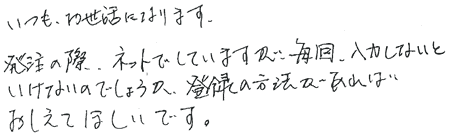 いつも、お世話になります。
発注の際、ネットでしていますが、毎回、入力しないと
いけないのでしょうか、登録の方法があれば
おしえてほしいです。